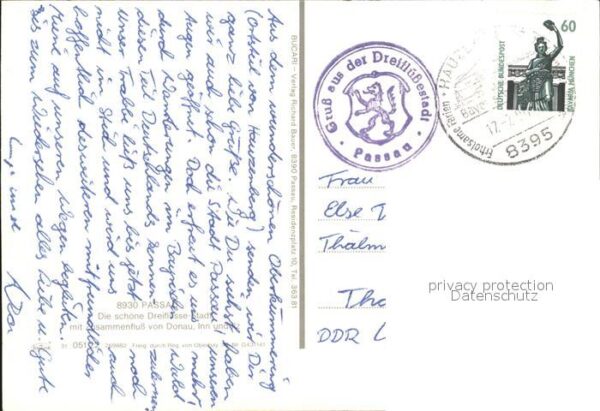 Aus dem wunderschönen Oberkümmering
(Ortsteil von Hauzenberg) senden wir Dir
ganz liebe Grüße. Wie Du siehst, haben
wir auch schon die Stadt Passau unseren
Augen geöffnet. Doch erfreut es uns mehr
durch Wanderungen im Bayrischen Wald
diesen Teil Deutschlands kennen zulernen.
Unser Trabi ließ uns bis jetzt noch
nicht im Stich und wird uns auch
hoffentlich des weiteren mit freundlicher
Miene auf unseren Wegen begleiten.
Bis zum Wiedersehen alles Liebe u. Gute
BUCARI - Verlag Richard Bauer, 8390 Passau, Residenzplatz 10, Tel. 36381
8390 PASSAU
Die schöne Dreiflüsse-Stadt
mit Zusammenfluß von Donau, Inn und
Gruß aus der Dreiflüßestadt
Passau
60
DEUTSCHE BUNDESPOST
BAVARIA MÜNCHEN
HAUZE
Erholsame Ferien
8395
Frau
Else
Thälm
Tha
DDR
privacy protection
Datenschutz